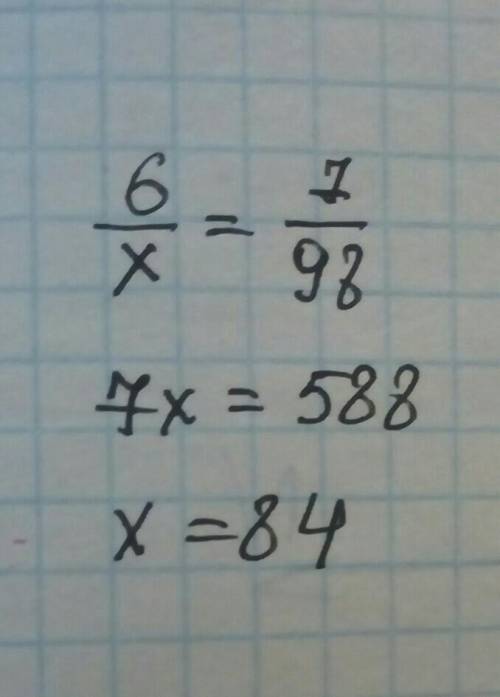 6/x = 7/98
7x = 588
x = 84